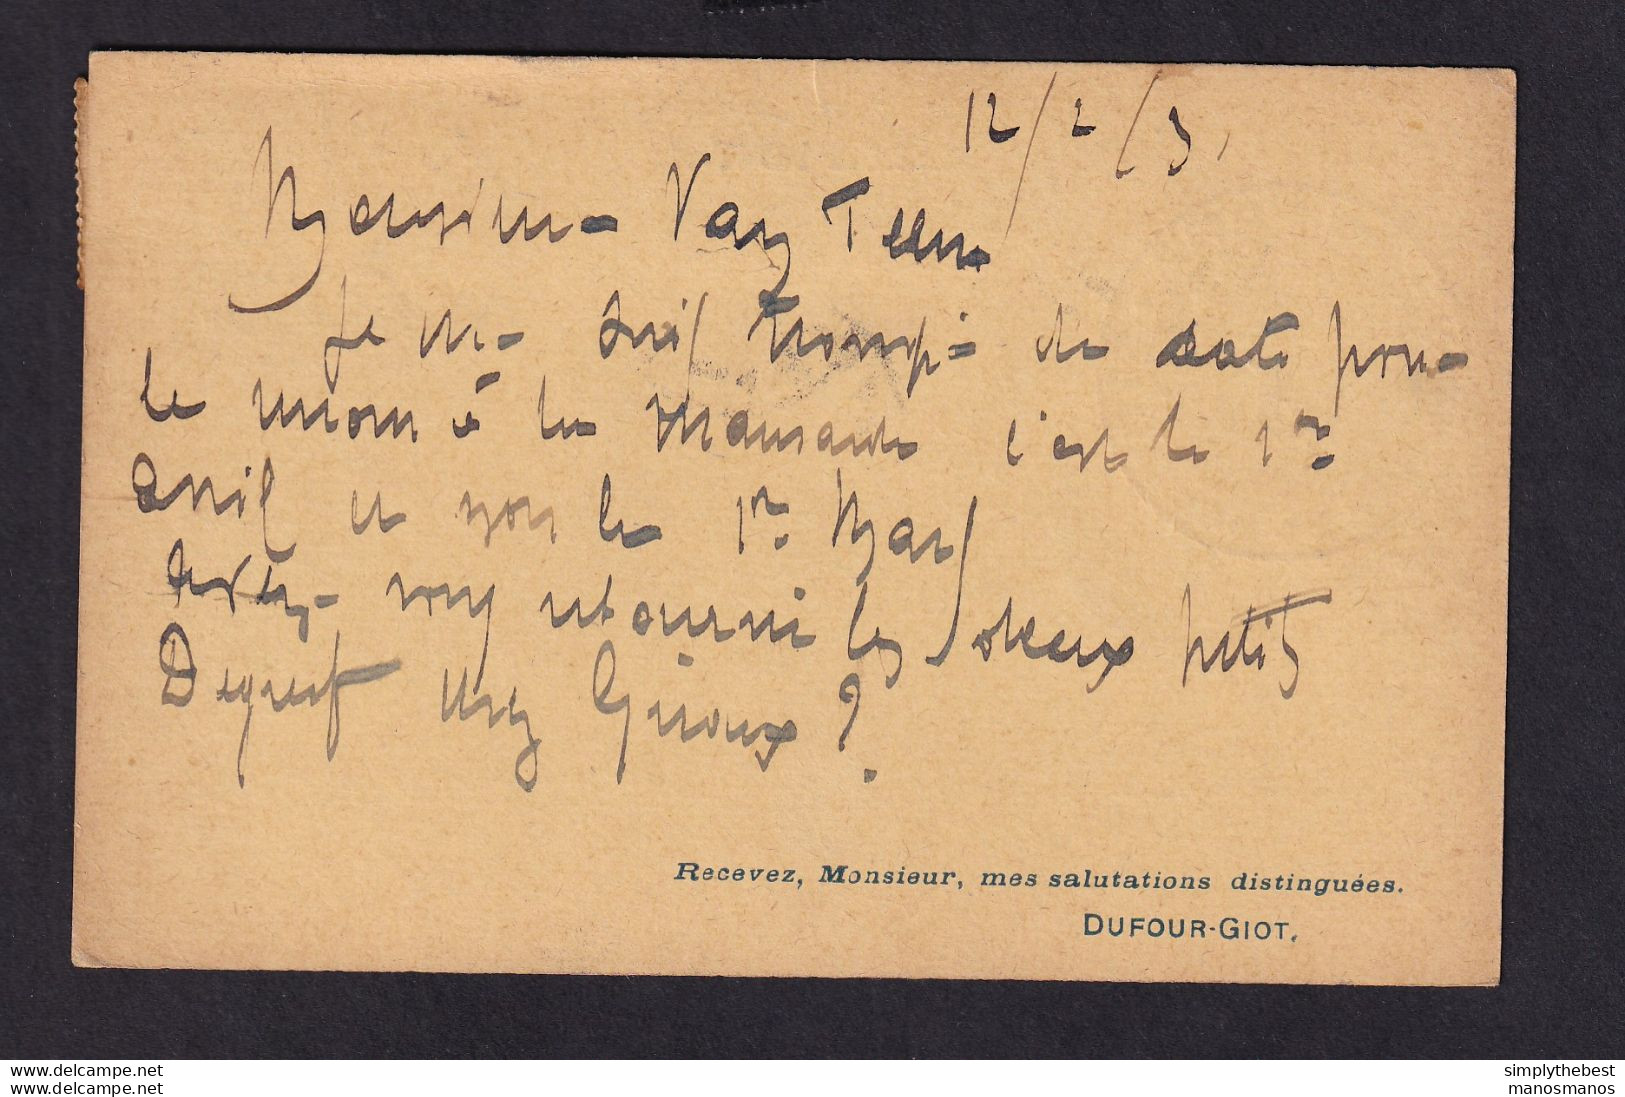 12/2/3.
Monsieur Van Teem
Je me suis trompé de date pour
le à la c'est le 1er
Avril et non le 1er Mars
Avez-vous retourné les petits
chez Giroux ?
Recevez, Monsieur, mes salutations distinguées.
DUFOUR-GIOT.
www.delcampe.net
manosmanos
simplythebest
manosmanos